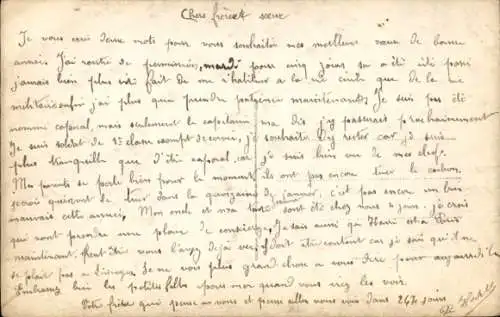 Chere frère et sœur
Je vous écri deux mots pour vous souhaiter mes meilleur vœux de bonne
anné. J'ai rentré de permission, mardi pour cinq jours sa a été été passé
jamais bien plus vite fait de me s'habituer a la vie civile que de la vie
militaire enfin j'ai plus que prendre patience maintenant. Je suis pas été
nommé caporal, mais seulement le capitaine ma dis j'y passerait prochainement
Je suis soldat de 1e class exempt de corvé, je souhaite d'y rester car je suis
plus tranquille que d'être caporal, car je suis bien vu de mes chefs.
Mes parents se porte bien pour le moment ils ont pas encore tuer le cochon
seront de tuer dans la quinzaine de janvier, c'est pas encore un bien
mauvais cette année, Mon oncle et ma tante sont été chez nous 4 jours. je crois
qui vont prendre une place de concierge, Je sais aussi qu Henri est a
maintenant. Peut être vous l'avez déjà vu doit être content car je sais qu'il ne
se plait pas a Je ne vois plus grand chose a vous dire pour aujourd'hui
Embrassez bien les petites filles pour moi quand vous irez les voir.
Votre frère qui pense a vous et pense allez vous voir dans 24 jours